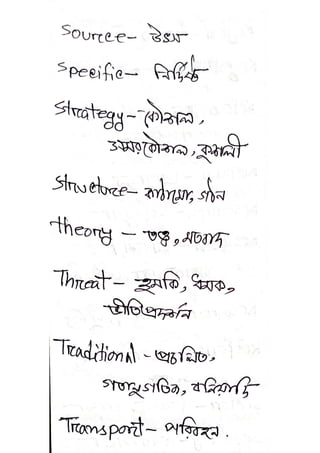 Source- উৎস
Specific- নির্দিষ্ট
Strategy- কৌশল,
সমরকৌশল, কুশলী
Structure- কাঠামো, গঠন
theory - তত্ত্ব, মতবাদ
Threat- হুমকি, ধমক,
ভীতিপ্রদর্শন
Traditional- প্রচলিত,
গতানুগতিক, বনিয়াদি
Transport- পরিবহন.